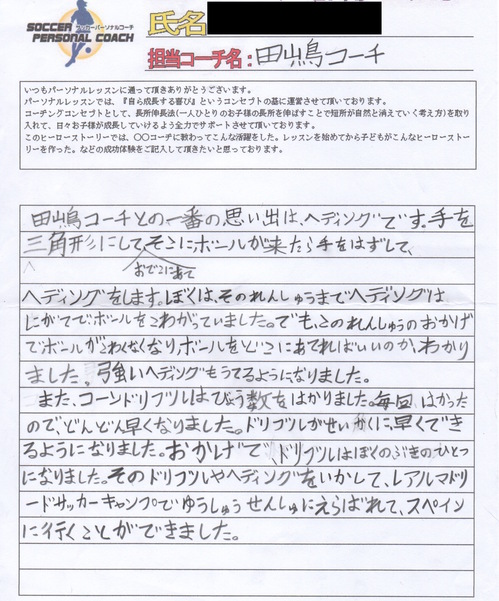 SOCCER サッカーパーソナルコーチ
PERSONAL COACH
氏名
担当コーチ名: 田嶋コーチ
いつもパーソナルレッスンに通って頂きありがとうございます。
パーソナルレッスンでは、『自ら成長する喜び』というコンセプトの基に運営させて頂いております。
コーチングコンセプトとして、長所伸長法(一人ひとりのお子様の長所を伸ばすことで短所が自然と消えていく考え方)を取り
入れて、日々お子様が成長していけるよう全力でサポートさせて頂いております。
このヒーローストーリーでは、〇〇コーチに教わってこんな活躍をした。レッスンを始めてから子どもがこんなヒーローストー
リーを作った。などの成功体験をご記入して頂きたいと思っております。
田嶋コーチとの一番の思い出は、ヘディングです。手を
三角形にして、そこにボールが来たら手をはずして、
おでこにあて
ヘディングをします。ぼくは、そのれんしゅうまでヘディングは
にがてでボールをこわがっていました。でも、このれんしゅうのおかげ
でボールがこわくなくなり、ボールをどこにあてればいいのか、わかり
ました。強いヘディングもうてるようになりました。
また、コーンドリブルはびょう数をはかりました。毎回、はかった
ので、どんどん早くなりました。ドリブルがせいかくに、早くでき
るようになりました。おかげで、ドリブルはぼくのぶきのひとつ
になりました。そのドリブルやヘディングをいかして、レアルマドリ
ードサッカーキャンプでゆうしゅうせんしゅにえらばれて、スペイン
に行くことができました。